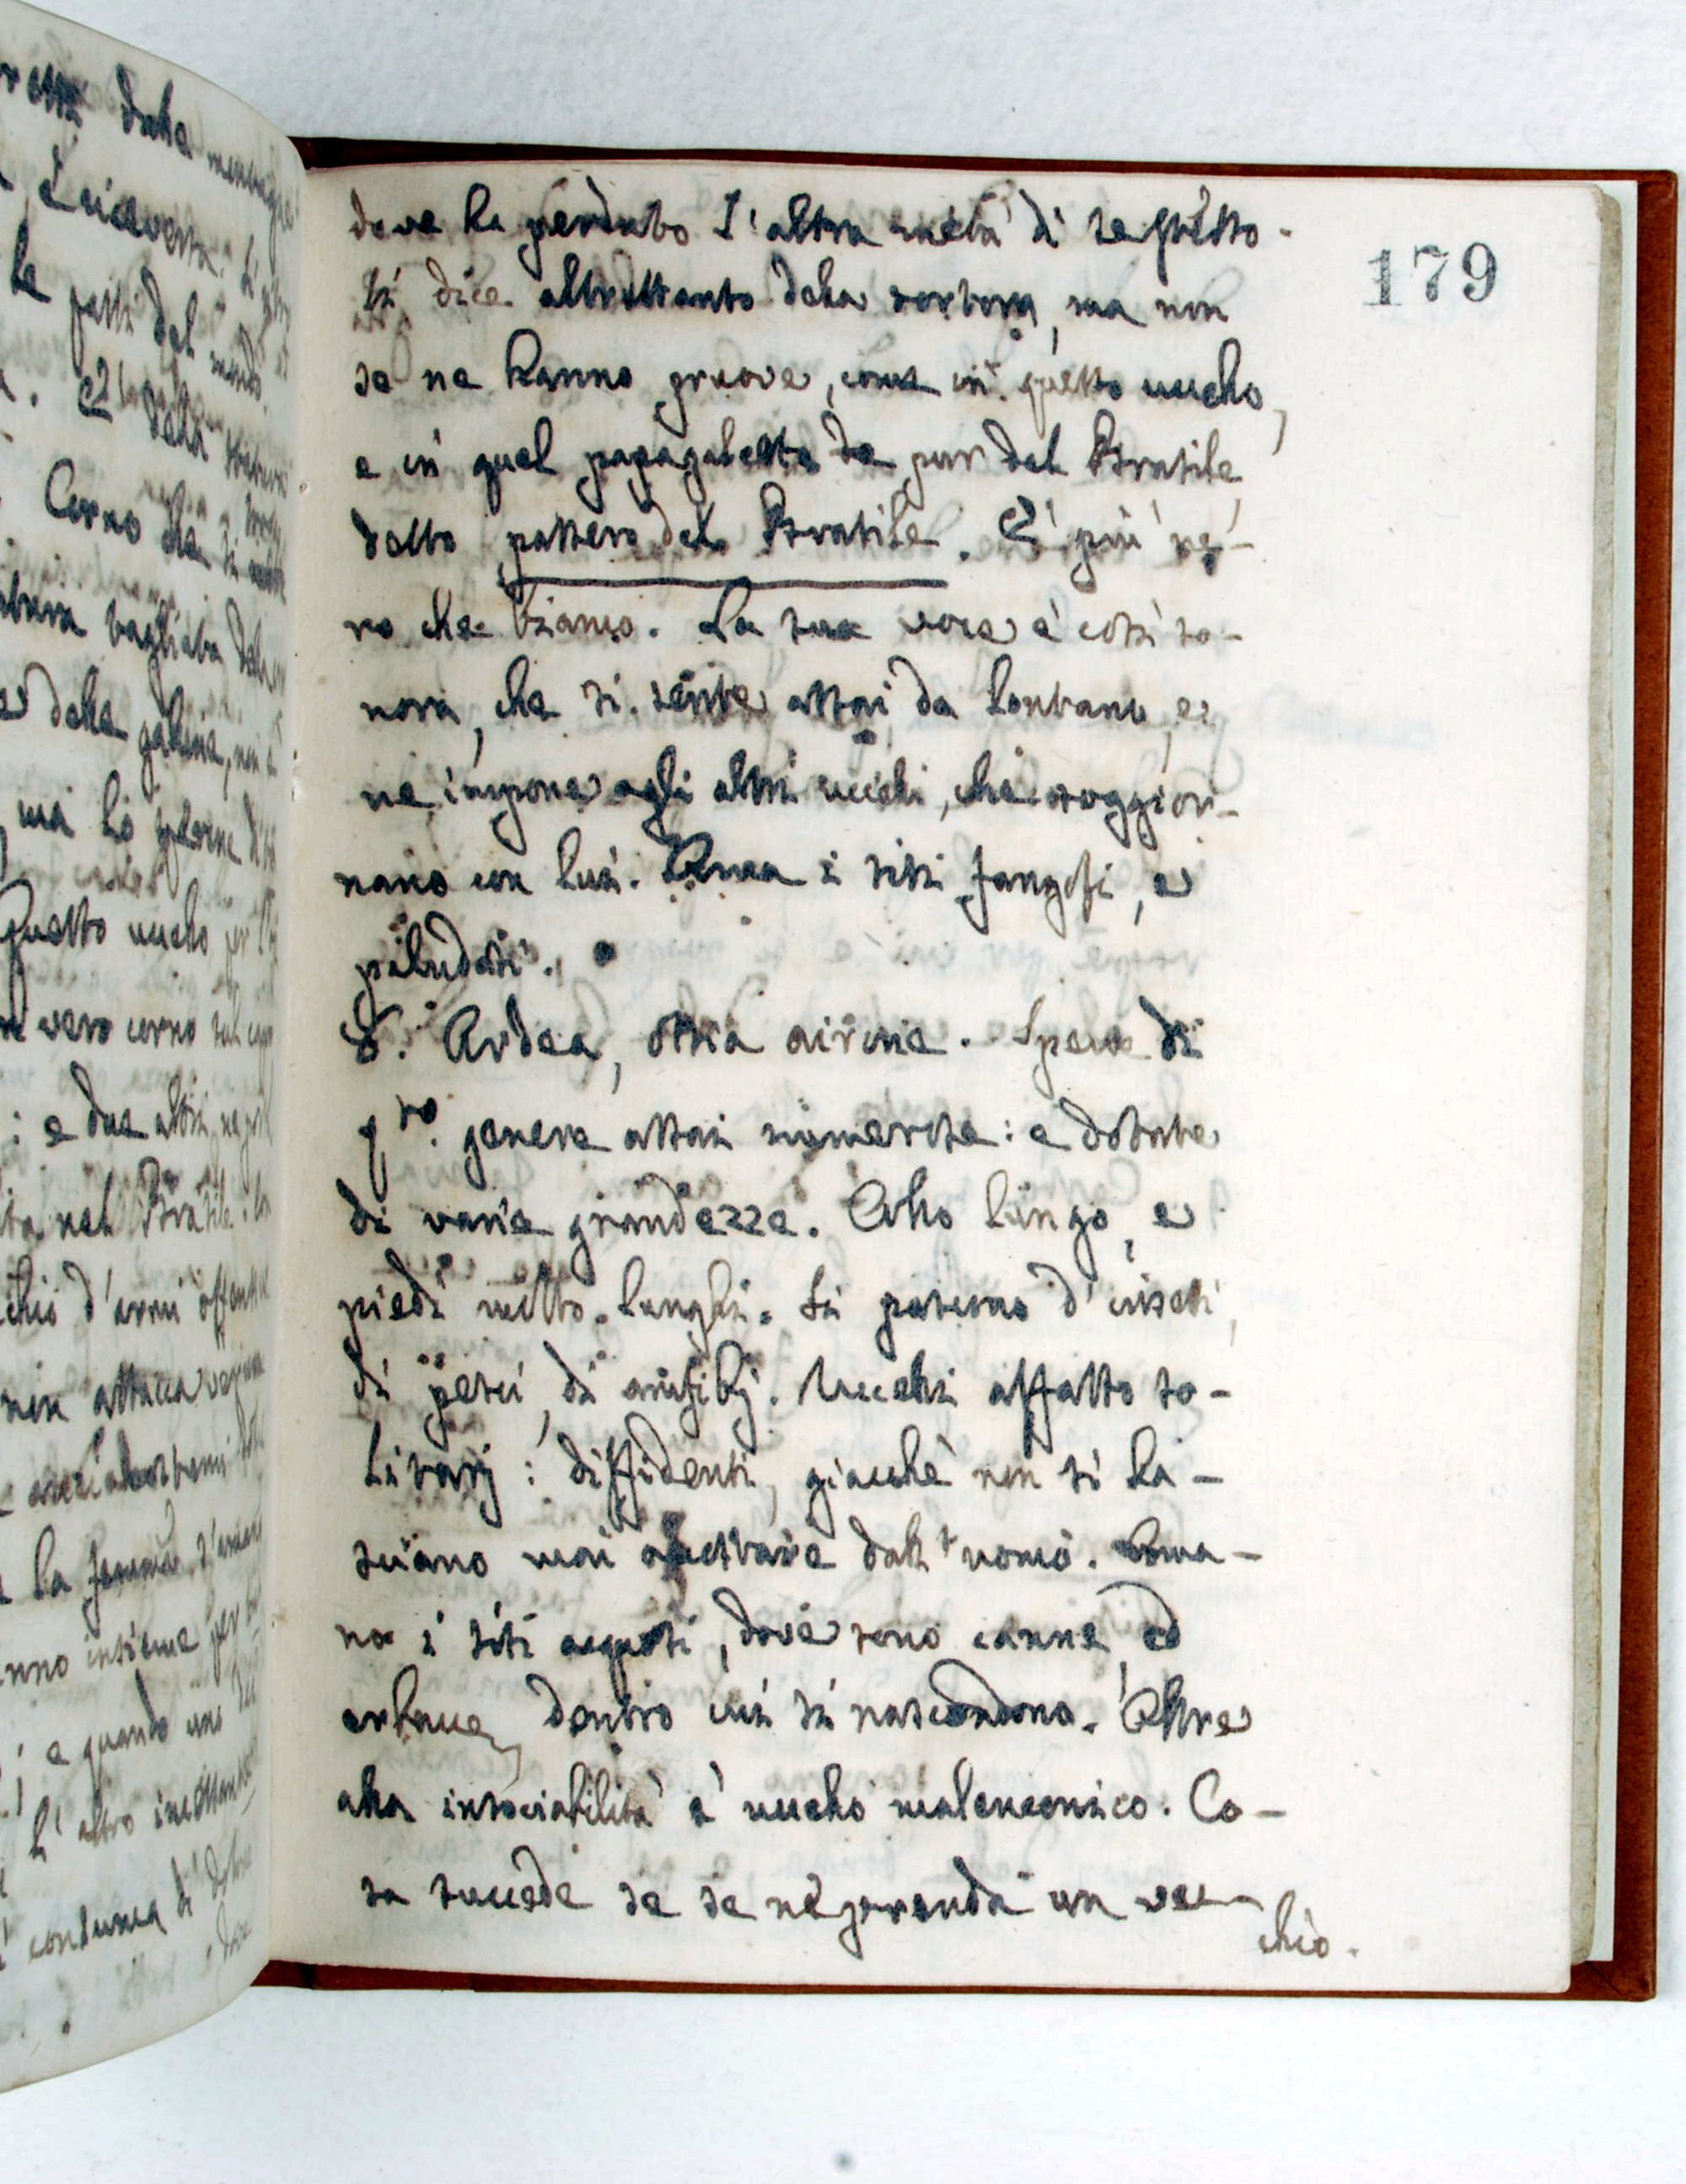 179
dove ha perduto l'altra metà di se stesso.
Si dice altrettanto della tortora, ma non
se ne hanno pruove, come in questo uccello,
e in quel papagalletto de pur del Brasile
detto passero del Brasile. È più ne-
ro che bianco. La sua voce è così so-
nora, che si sente assai da lontano, e
ne impone agli altri uccelli, che soggior-
nano con lui. Ama i siti fangosi, e
paludosi.
8. Ardea, ossia airone. Specie di
qto. genere assai numerose: e dotate
di varie grandezze. Collo lungo, e
piedi molto lunghi. Si pascono d'insetti,
di pesci, di anfibj. Uccelli affatto so-
litarj: diffidenti, giacchè non si la-
sciano mai dall'uomo. Ama-
no i siti acquosi, dove sono canne, ed
erbacce, dentro cui si nascondono. Oltre
alla insociabilità è uccello malenconico. Co-
sa succede se se ne prenda un vec-
chio.